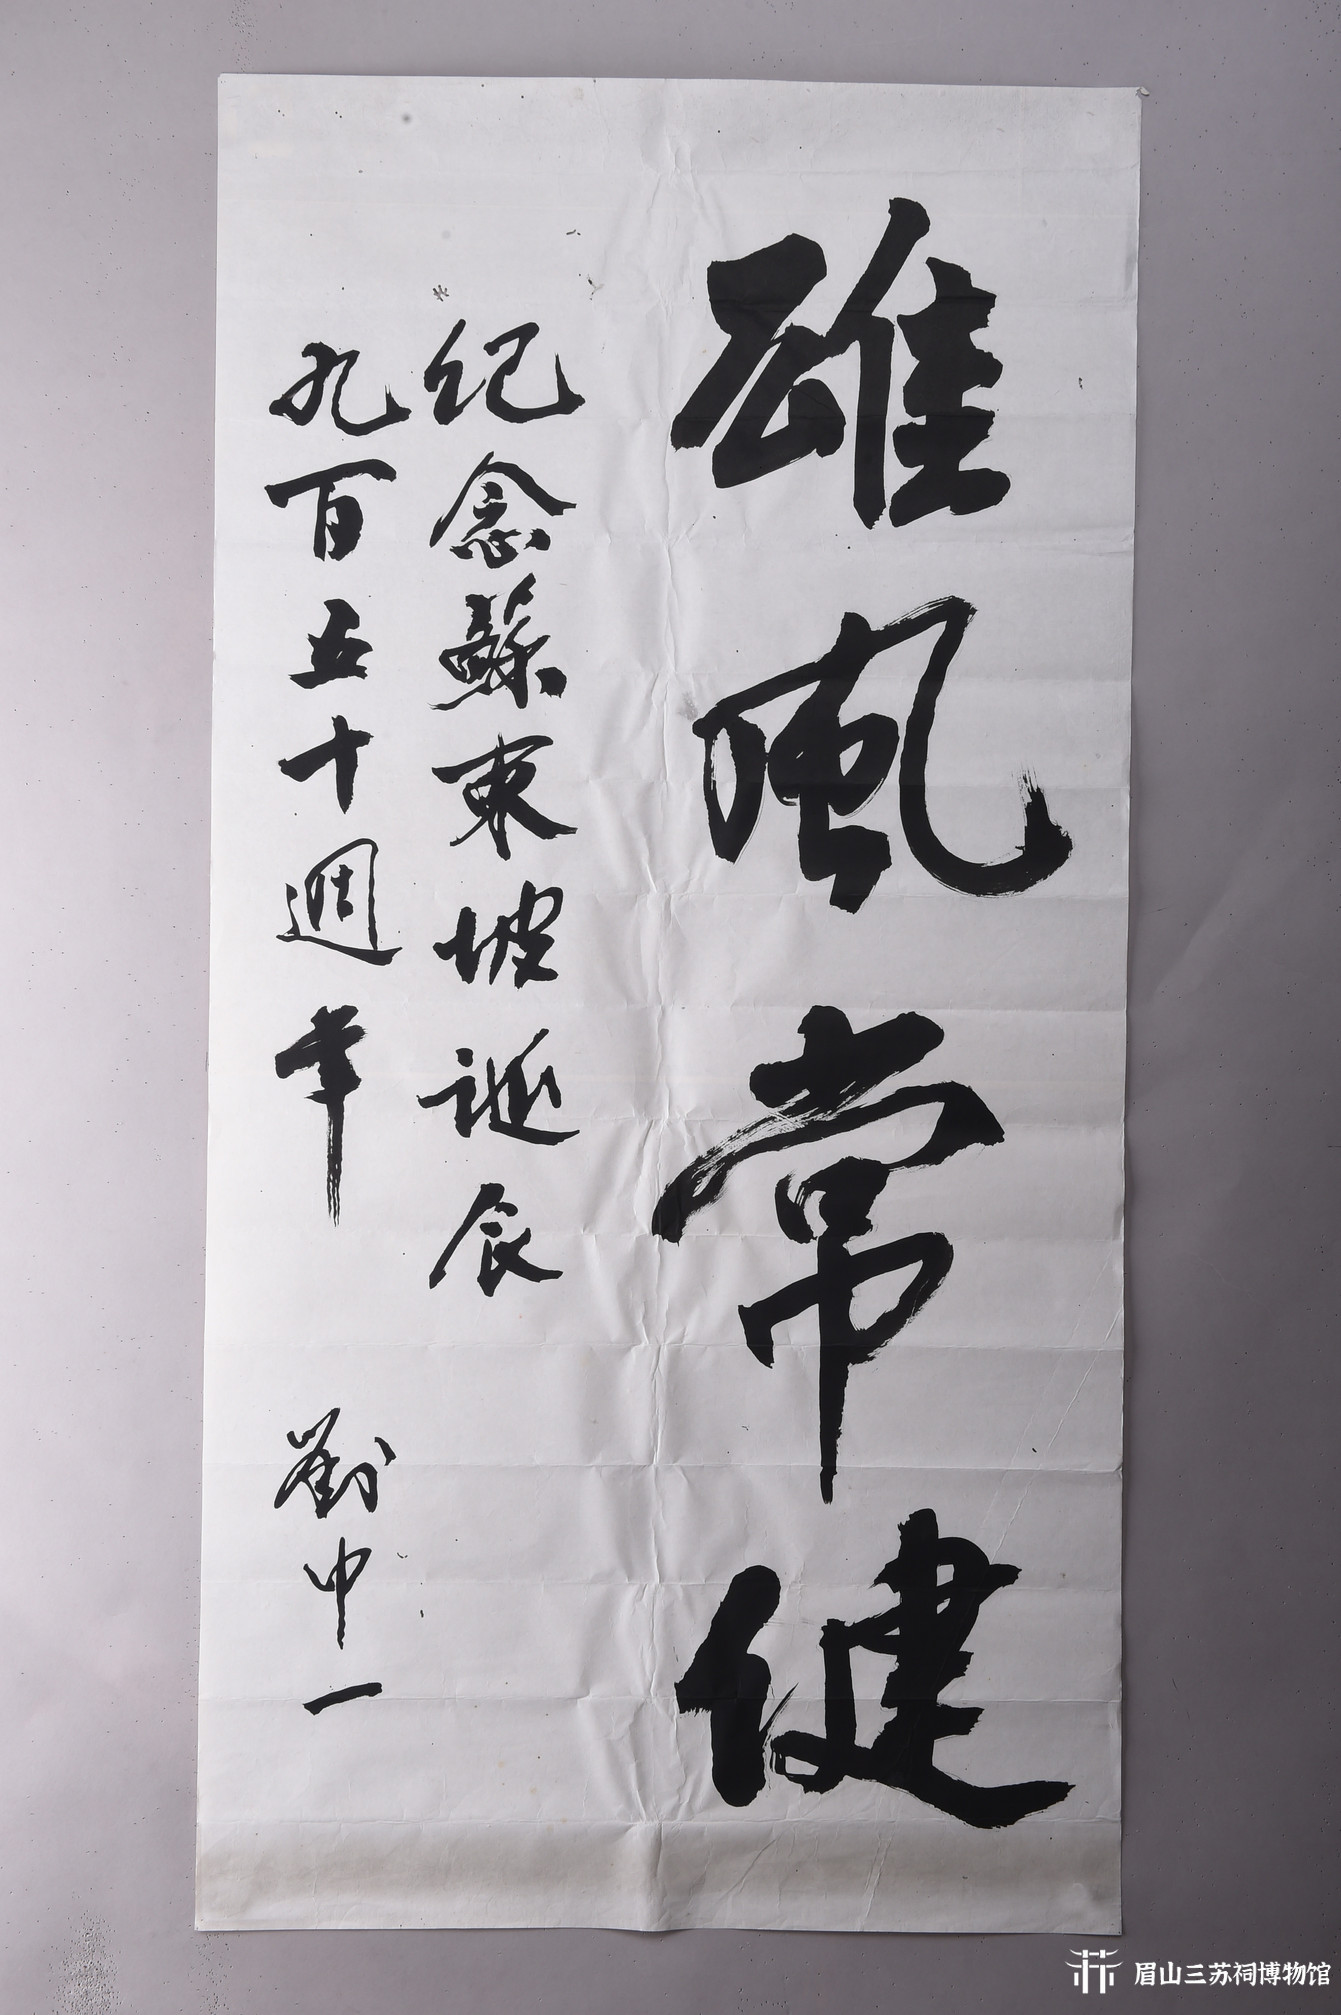 雄風常健
纪念蘇東坡誕辰
九百五十週年
劉中一
眉山三苏祠博物馆